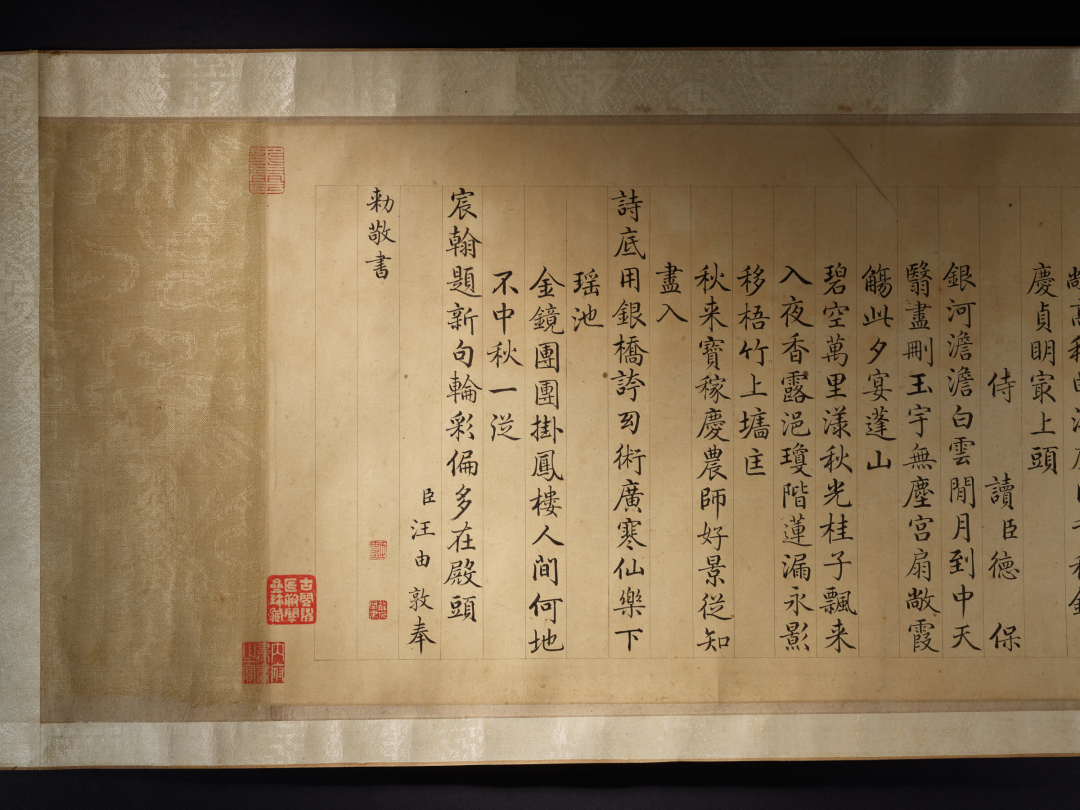 慶貞眀㝡上頭
侍讀臣德保
銀河澹澹白雲閒月到中天
翳盡刪玉宇無塵宮扇敞霞
觴此夕宴蓬山
碧空萬里漾秋光桂子飄来
入夜香露浥瓊階蓮漏永影
移梧竹上墻匡
秋来寶稼慶農師好景從知
盡入
詩底用銀橋誇幻術廣寒仙樂下
瑶池
金鏡團團掛鳳樓人間何地
不中秋一從
宸翰題新句輪彩偏多在殿頭
臣汪由敦奉
勅敬書